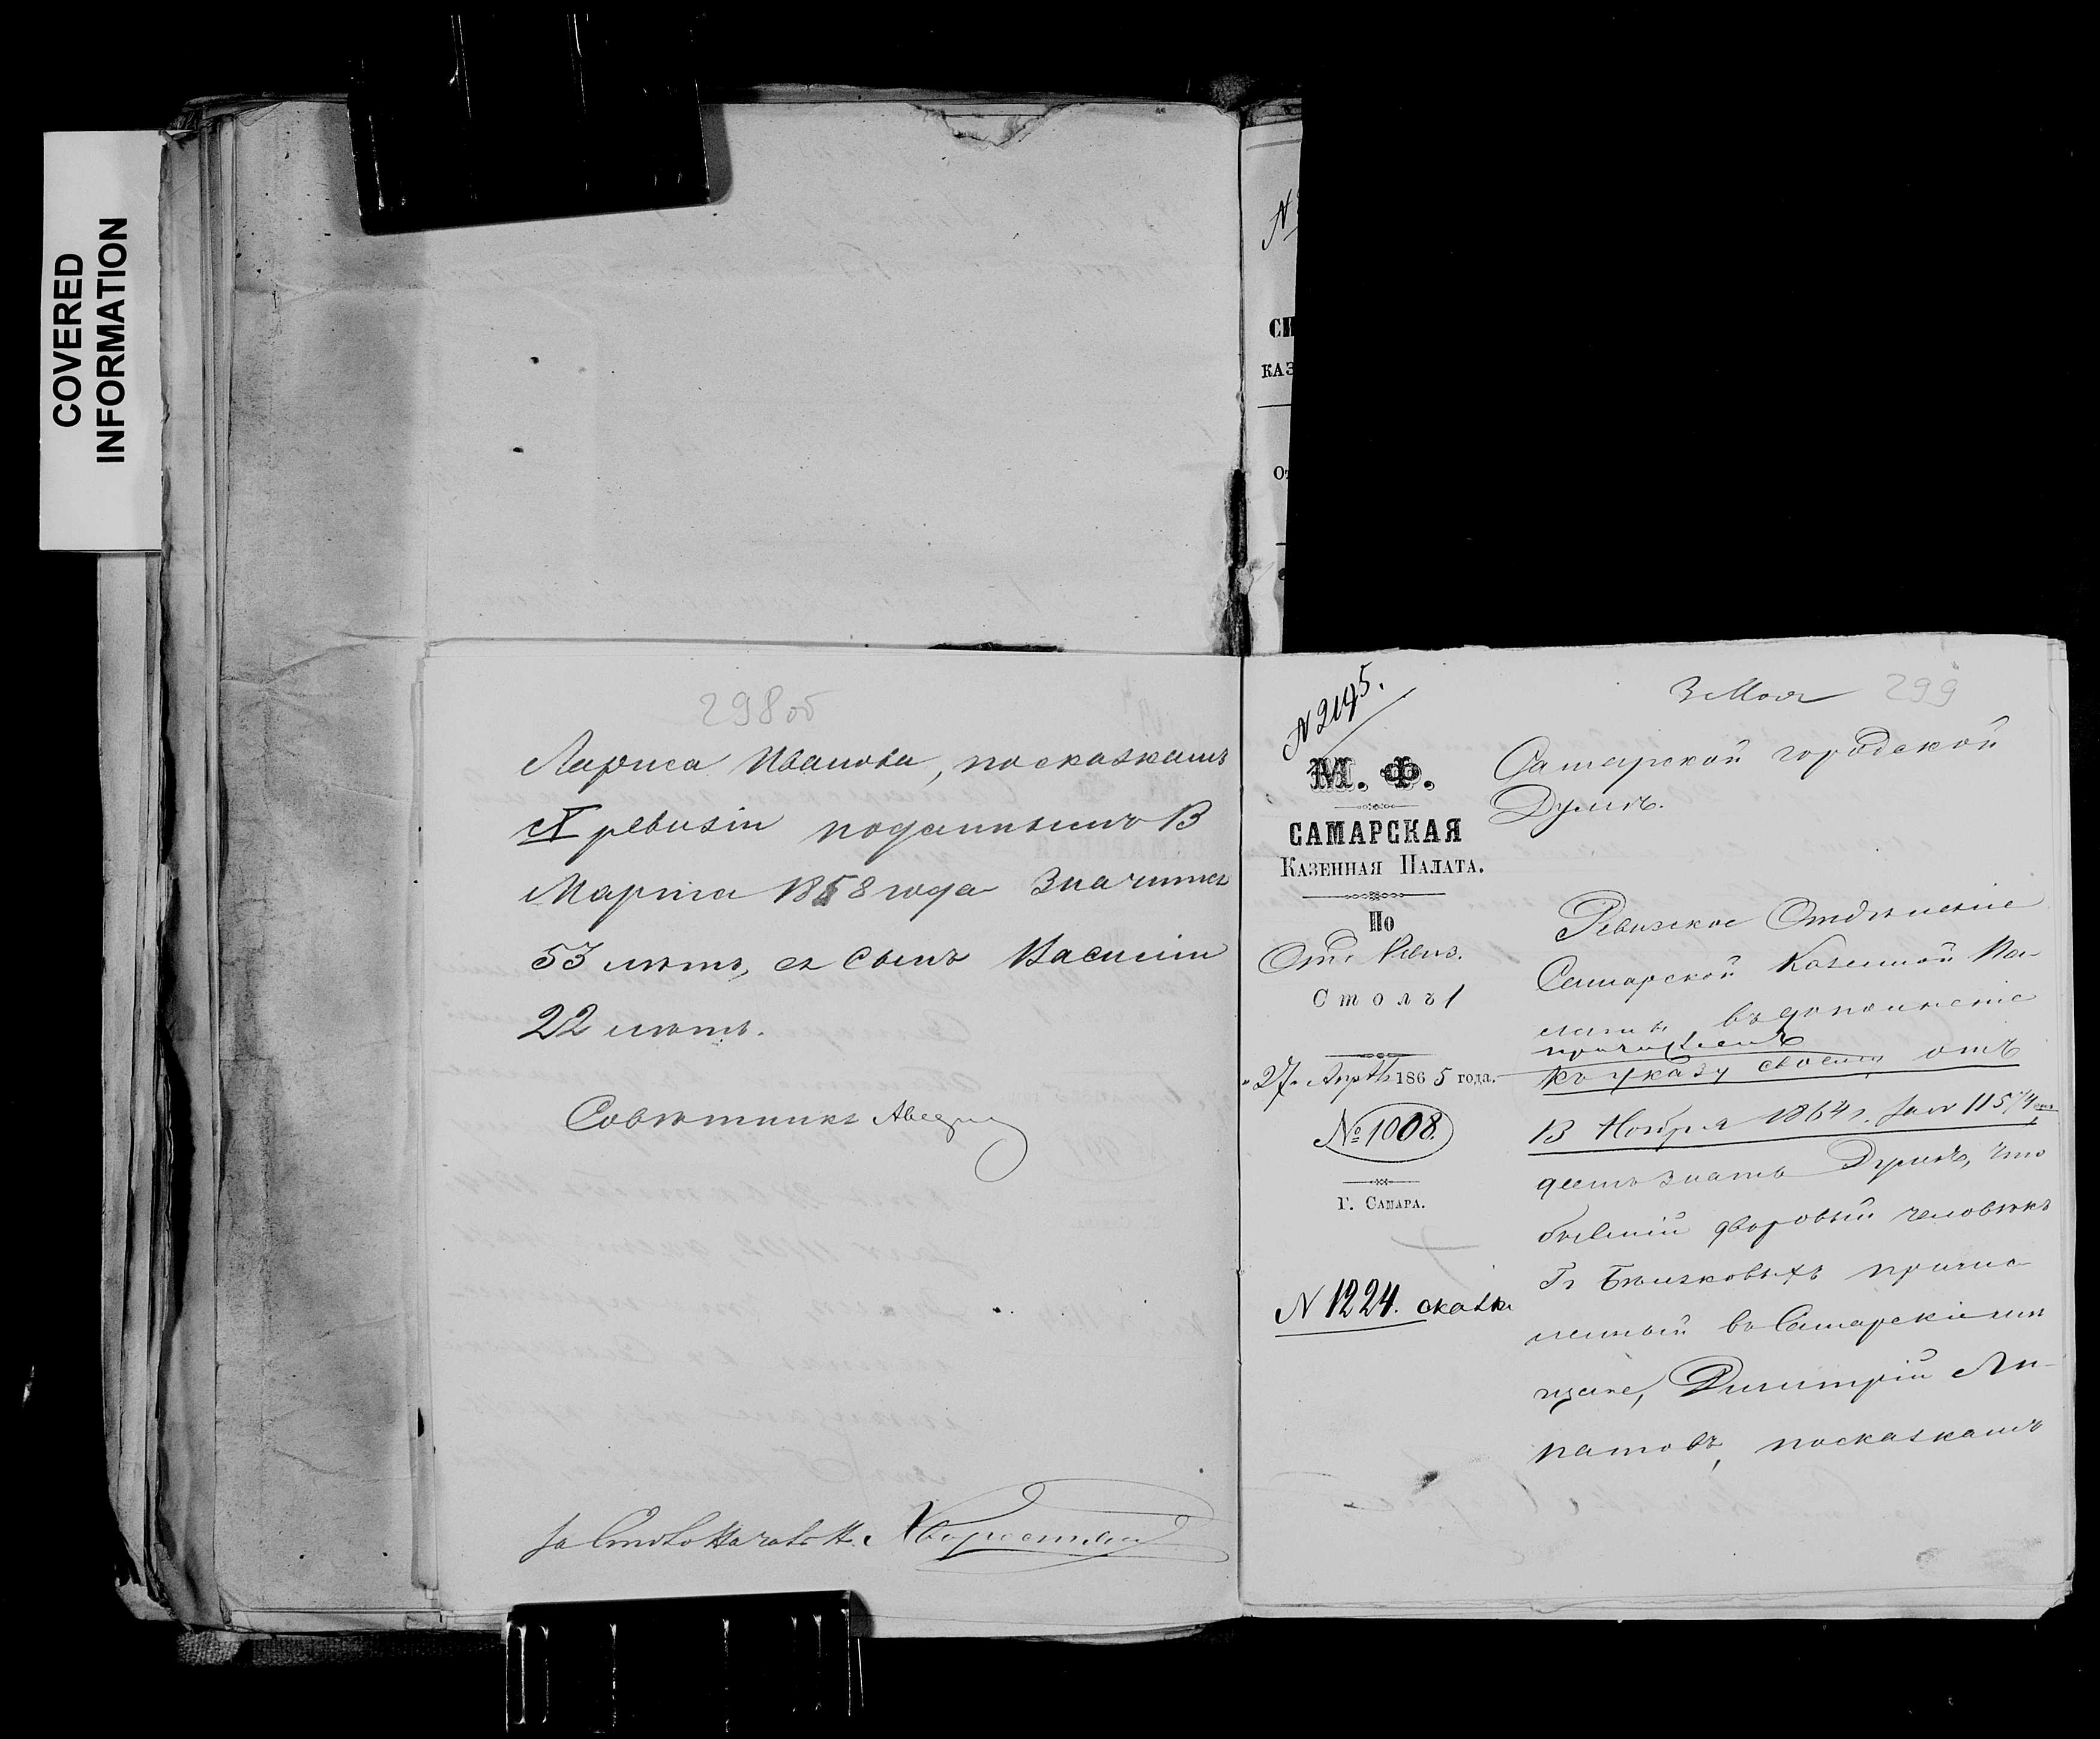 COVERED
INFORMATION
298 об
Лариса Иванова, посказкамъ
X ревизіи поданнымъ 13
Марта 1858 года значится
53 лѣтъ, ея сынъ Василій
22 лѣтъ.
Совѣтникъ
За Столоначальн.
N
СП
КАЗ
От
N 2195.
М. Ф.
САМАРСКАЯ
КАЗЕННАЯ ПАЛАТА.
По
Отд. Ревиз.
Столъ 1
"27" Апрѣ 1865 года.
№ 1008.
Г. САМАРА.
N 1224. сказк
3 Мая 299
Самарской городской
Думѣ.
Ревизское Отдѣленіе
Самарской Казенной Па-
латы, въ дополненіе
къ указу своему отъ
13 Ноября 1864 г. за № 11574
даетъ знать Думѣ, что
бывшій дворовый человѣкъ
Гг причис-
ленный въ Самарскіе мѣ
щане, Димитрій Ли-
патовъ, посказкамъ